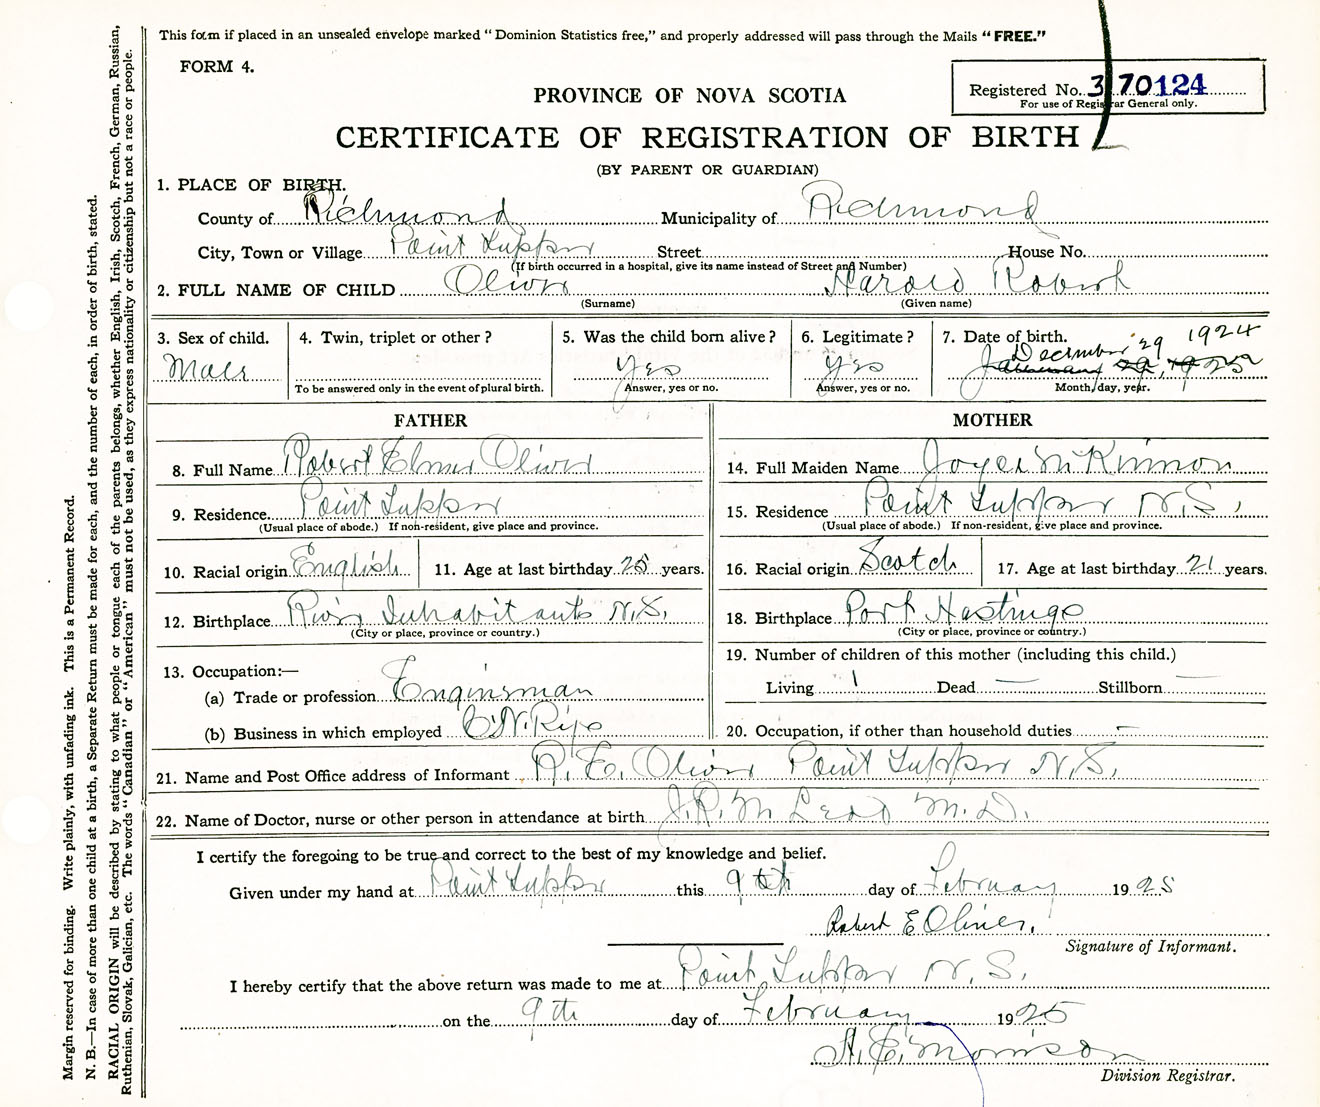 This form if placed in an unsealed envelope marked "Dominion Statistics free," and properly addressed will pass through the Mails "FREE."
FORM 4.
Registered No. 3 70124
For use of Registrar General only.
PROVINCE OF NOVA SCOTIA
CERTIFICATE OF REGISTRATION OF BIRTH
(BY PARENT OR GUARDIAN)
1. PLACE OF BIRTH.
County of Richmond Municipality of Richmond
City, Town or Village Point Tupper Street House No.
(If birth occurred in a hospital, give its name instead of Street and Number)
2. FULL NAME OF CHILD Oliver Harold Robert
(Surname) (Given name)
3. Sex of child. 4. Twin, triplet or other? 5. Was the child born alive? 6. Legitimate? 7. Date of birth.
Male Yes Yes December 29 1924
To be answered only in the event of plural birth. Answer, yes or no. Answer, yes or no. Month, day, year.
FATHER MOTHER
8. Full Name Robert Elmer Oliver 14. Full Maiden Name Joyce McKinnon
9. Residence Point Tupper 15. Residence Point Tupper N.S.
(Usual place of abode.) If non-resident, give place and province. (Usual place of abode.) If non-resident, give place and province.
10. Racial origin English 11. Age at last birthday 25 years. 16. Racial origin Scotch 17. Age at last birthday 21 years.
12. Birthplace River Inhabitants N.S. 18. Birthplace Port Hastings
(City or place, province or country.) (City or place, province or country.)
13. Occupation:— 19. Number of children of this mother (including this child.)
(a) Trade or profession Engineman Living 1 Dead — Stillborn —
(b) Business in which employed C.N. Rys 20. Occupation, if other than household duties —
21. Name and Post Office address of Informant R. E. Oliver Point Tupper N.S.
22. Name of Doctor, nurse or other person in attendance at birth J. R. McLeod M.D.
I certify the foregoing to be true and correct to the best of my knowledge and belief.
Given under my hand at Point Tupper this 9th day of February 1925
Robert E Oliver.
Signature of Informant.
I hereby certify that the above return was made to me at Point Tupper N.S.
on the 9th day of February 1925
A. E. Morrison
Division Registrar.
Margin reserved for binding. Write plainly, with unfading ink. This is a Permanent Record.
N. B.—In case of more than one child at a birth, a Separate Return must be made for each, and the number of each, in order of birth, stated.
RACIAL ORIGIN will be described by stating to what people or tongue each of the parents belongs, whether English, Irish, Scotch, French, German, Russian,
Ruthenian, Slovak, Galician, etc. The words "Canadian" or "American" must not be used, as they express nationality or citizenship but not a race or people.